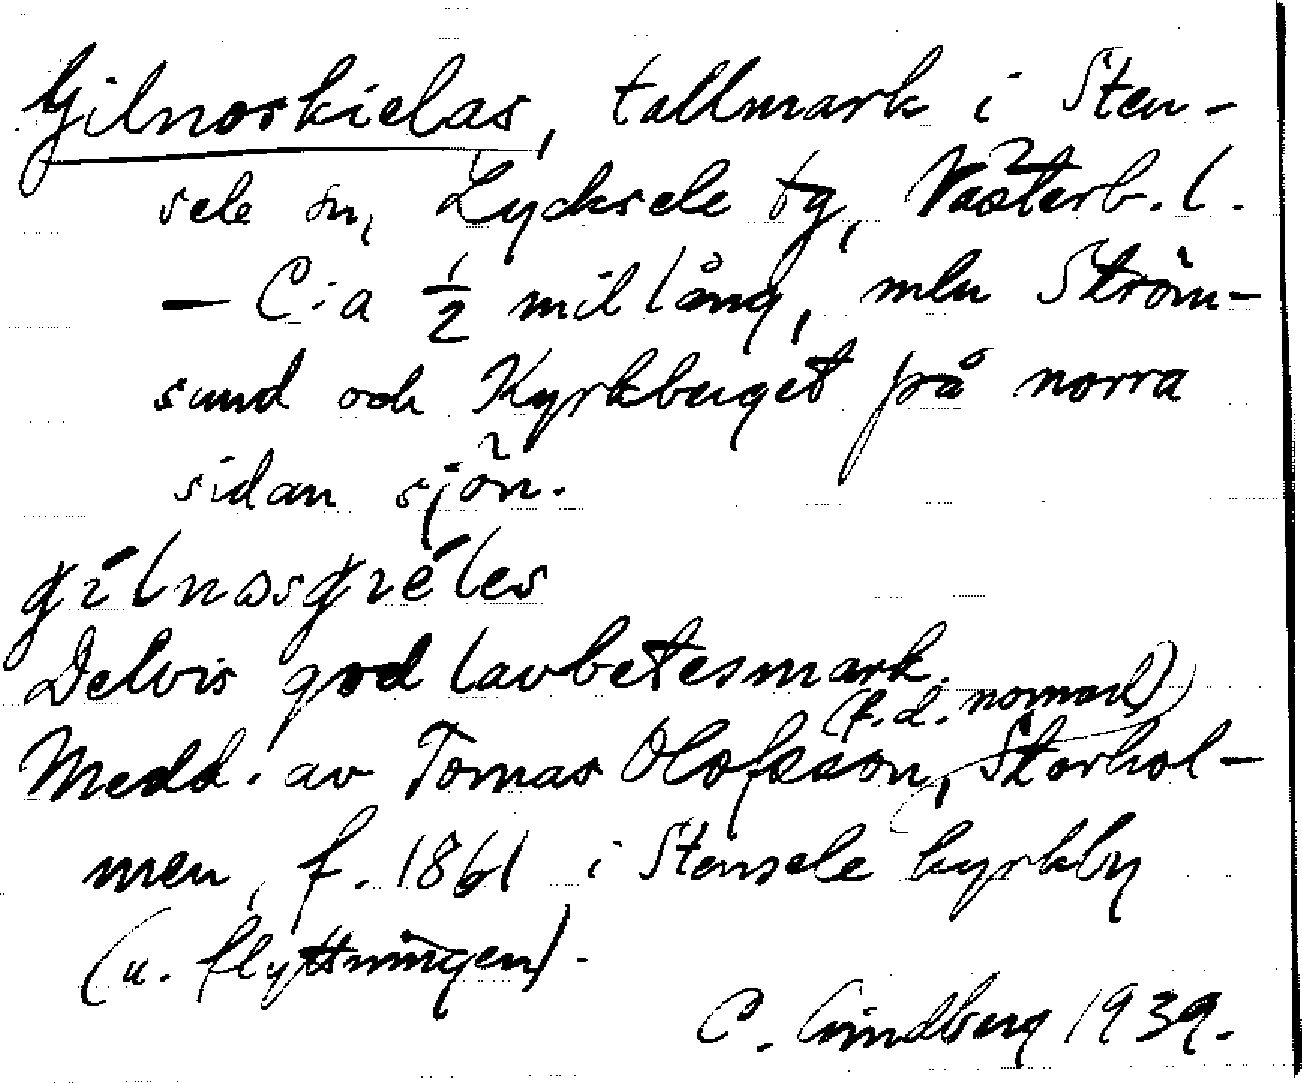 Gilnoskielas, tallmark i Sten-
sele sn, Lycksele tg, Västerb. l.
— C:a ½ mil lång, mln Ström-
sund och Kyrkberget på norra
sidan sjön.
Delvis god lavbetesmark.
(f.d. nomad)
Medd. av Tomas Olofsson, Storhol-
men, f. 1861 i Stensele kyrkby
(u. flyttningen).
C. Lindberg 1939.